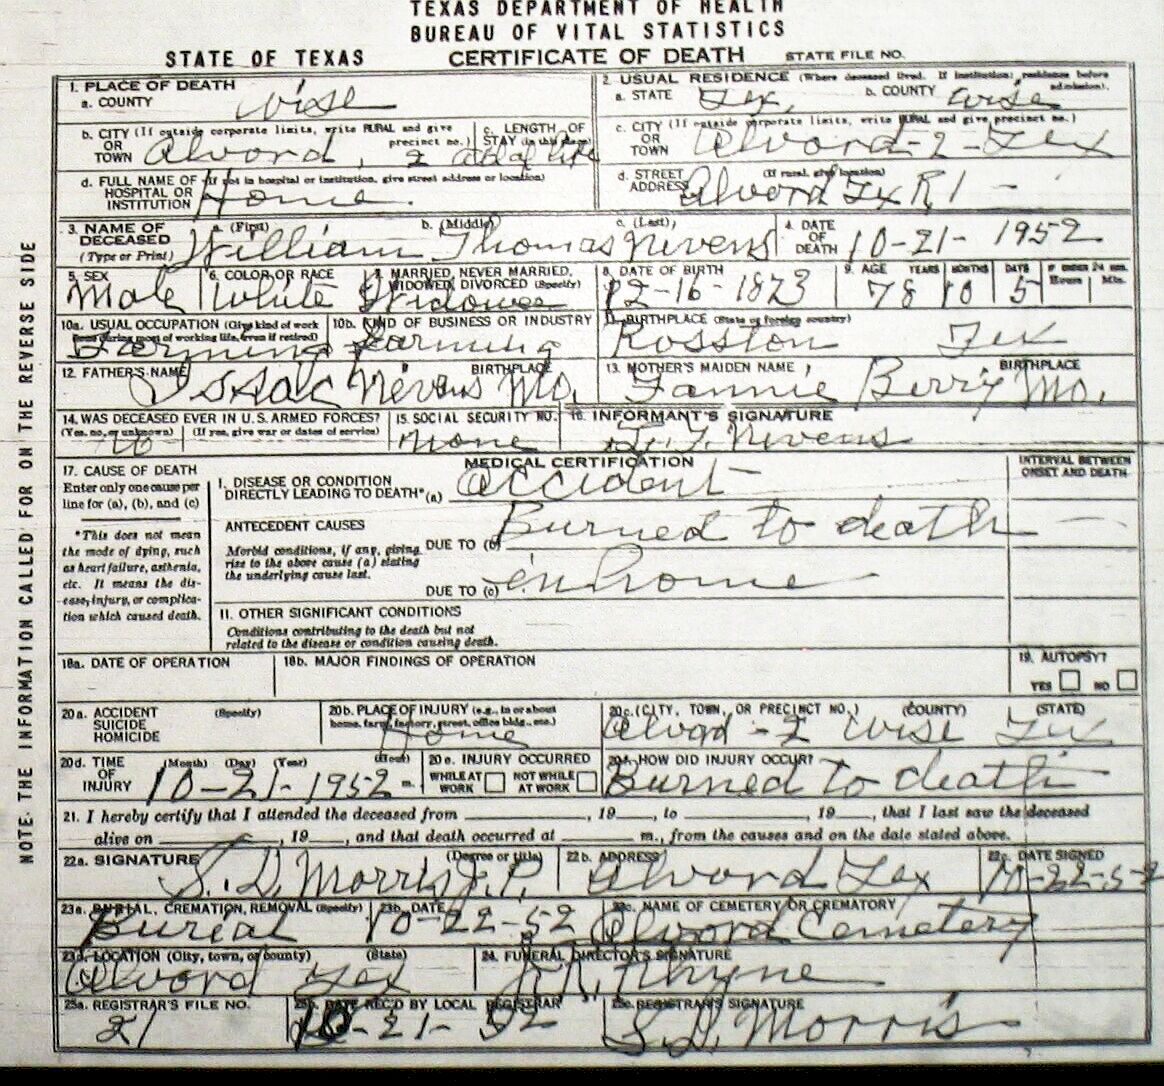 TEXAS DEPARTMENT OF HEALTH
BUREAU OF VITAL STATISTICS
STATE OF TEXAS CERTIFICATE OF DEATH STATE FILE NO.
NOTE- THE INFORMATION CALLED FOR ON THE REVERSE SIDE
1. PLACE OF DEATH
a. COUNTY Wise
2. USUAL RESIDENCE (Where deceased lived. If institution; residence before admission).
a. STATE Tex. b. COUNTY Wise
b. CITY (If outside corporate limits, write RURAL and give precinct no.)
OR
TOWN Alvord, 2
c. LENGTH OF
STAY (in this place) all of life
c. CITY (If outside corporate limits, write RURAL and give precinct no.)
OR
TOWN Alvord-2-Tex
d. FULL NAME OF (If not in hospital or institution, give street address or location)
HOSPITAL OR
INSTITUTION Home.
d. STREET (If rural, give location)
ADDRESS Alvord Tex R1 -
3. NAME OF a. (First) b. (Middle) c. (Last)
DECEASED
(Type or Print) William Thomas Nivens
4. DATE
OF
DEATH 10-21-1952
5. SEX
Male
6. COLOR OR RACE
White
7. MARRIED, NEVER MARRIED,
WIDOWED, DIVORCED (Specify)
Widower
8. DATE OF BIRTH
12-16-1873
9. AGE YEARS MONTHS DAYS IF UNDER 24 HRS. Hours Min.
78 10 5
10a. USUAL OCCUPATION (Give kind of work
done during most of working life, even if retired)
Farming
10b. KIND OF BUSINESS OR INDUSTRY
Farming
11. BIRTHPLACE (State or foreign country)
Rosston Tex
12. FATHER'S NAME BIRTHPLACE
Isaac Nivens Mo.
13. MOTHER'S MAIDEN NAME BIRTHPLACE
Fannie Berry Mo.
14. WAS DECEASED EVER IN U.S. ARMED FORCES?
(Yes, no, or unknown) (If yes, give war or dates of service)
no
15. SOCIAL SECURITY NO.
none
16. INFORMANT'S SIGNATURE
Nivens
MEDICAL CERTIFICATION
INTERVAL BETWEEN
ONSET AND DEATH
17. CAUSE OF DEATH
Enter only one cause per
line for (a), (b), and (c)
*This does not mean
the mode of dying, such
as heart failure, asthenia,
etc. It means the dis-
ease, injury, or complica-
tion which caused death.
I. DISEASE OR CONDITION
DIRECTLY LEADING TO DEATH* (a) Accident -
ANTECEDENT CAUSES
Morbid conditions, if any, giving
rise to the above cause (a) stating
the underlying cause last.
DUE TO (b) Burned to death -
DUE TO (c) in home
II. OTHER SIGNIFICANT CONDITIONS
Conditions contributing to the death but not
related to the disease or condition causing death.
18a. DATE OF OPERATION
18b. MAJOR FINDINGS OF OPERATION
19. AUTOPSY?
YES NO
20a. ACCIDENT (Specify)
SUICIDE
HOMICIDE
20b. PLACE OF INJURY (e.g., in or about
home, farm, factory, street, office bldg., etc.)
Home
20c. (CITY, TOWN, OR PRECINCT NO.) (COUNTY) (STATE)
Alvord - 2 Wise Tex
20d. TIME (Month) (Day) (Year) (Hour)
OF
INJURY 10-21-1952 m.
20e. INJURY OCCURRED
WHILE AT WORK NOT WHILE AT WORK
20f. HOW DID INJURY OCCUR?
Burned to death
21. I hereby certify that I attended the deceased from ____, 19__, to ____, 19__, that I last saw the deceased
alive on ____, 19__, and that death occurred at ____ m., from the causes and on the date stated above.
22a. SIGNATURE (Degree or title)
S. D. Morris J.P.
22b. ADDRESS
Alvord Tex
22c. DATE SIGNED
10-22-52
23a. BURIAL, CREMATION, REMOVAL (Specify)
Bureal
23b. DATE
10-22-52
23c. NAME OF CEMETERY OR CREMATORY
Alvord Cemetery
23d. LOCATION (City, town, or county) (State)
Alvord Tex
24. FUNERAL DIRECTOR'S SIGNATURE
Rhyne
25a. REGISTRAR'S FILE NO.
21
25b. DATE REC'D BY LOCAL REGISTRAR
10-21-52
25c. REGISTRAR'S SIGNATURE
S. D. Morris